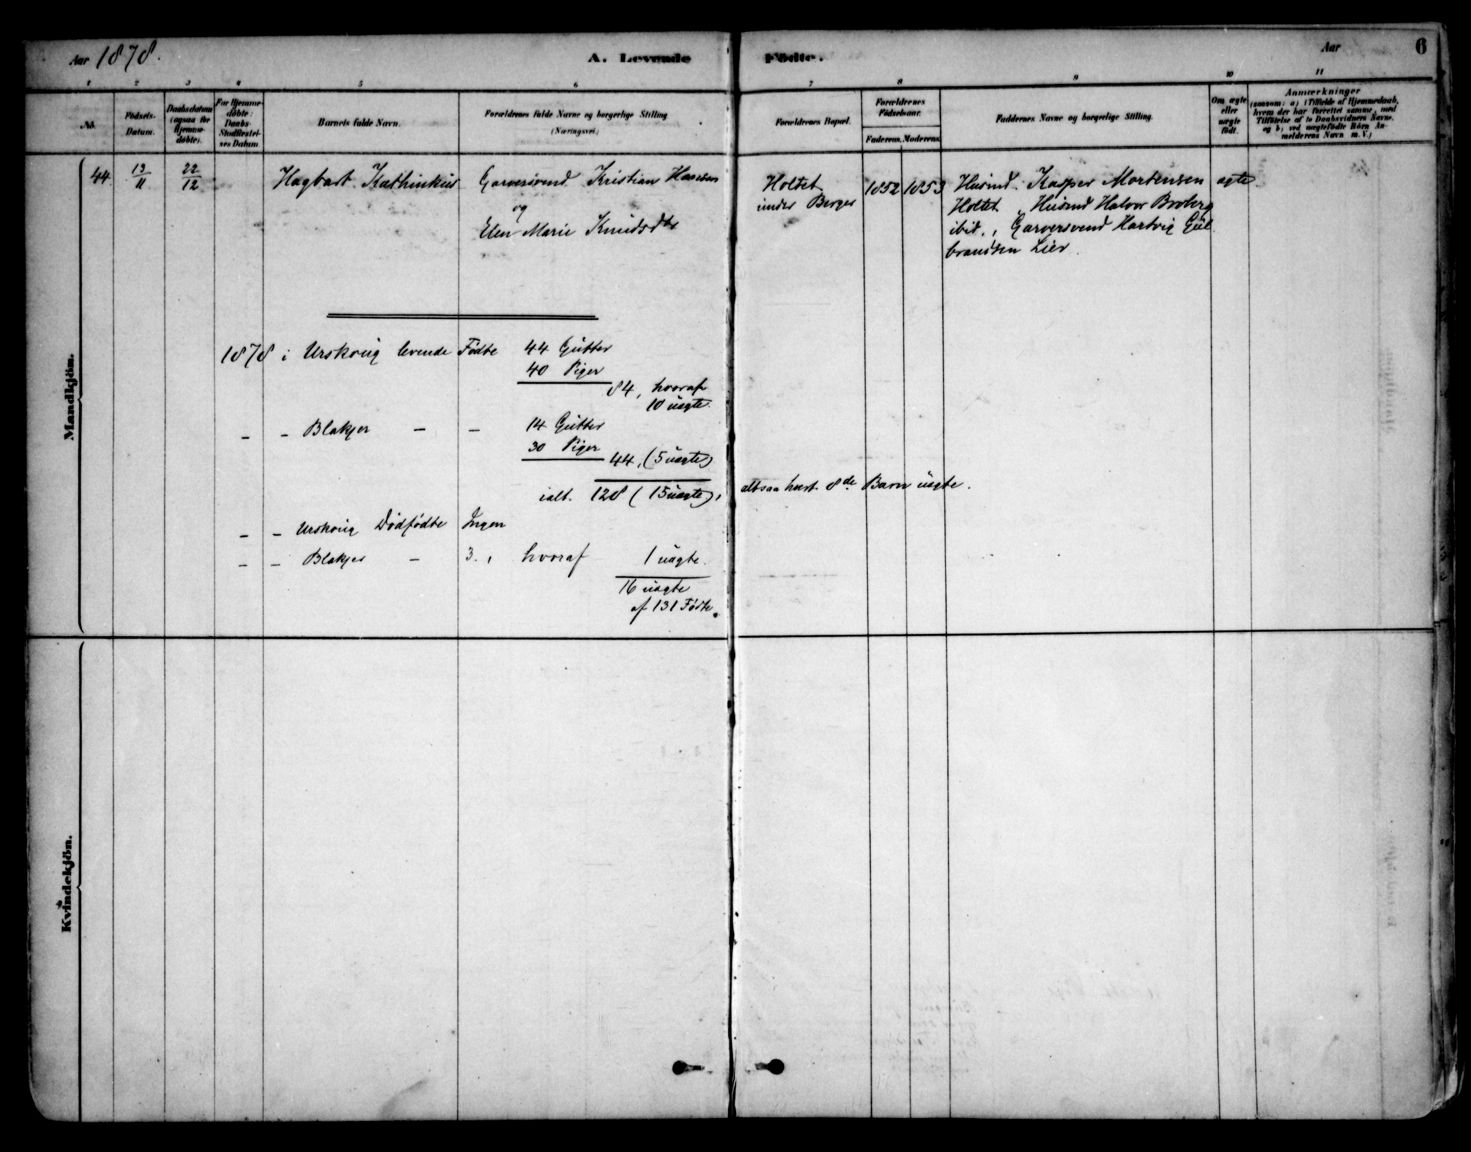 Aar 1878.
A. Levende Fødte.
Aar
6
1 2 3 4 5 6 7 8 9 10 11
No.
Fødsels-Datum.
Daabsdatum (ogsaa for Hjemmedøbte).
For Hjemmedøbte: Daabs-Stadfæstelses Datum
Barnets fulde Navn.
Forældrenes fulde Navne og borgerlige Stilling (Næringsvei.)
Forældrenes Bopæl.
Forældrenes Fødselsaar.
Faderens. Moderens.
Faddernes Navne og borgerlige Stilling.
Om ægte eller uægte født.
Anmærkninger
(saasom: a) i Tilfælde af Hjemmedaab, hvem der har forrettet samme, med Tilføielse af to Daabsvidners Navne, og b) ved uægtefødte Børn Anmelderens Navn m. V.)
Mandkjön.
44 13/11 22/12 Hagbart Kathinkus Garversvend Kristian Hansen
og
Elen Marie Knudsdtr
Holtet
under Berger
1852 1853
Husmd. Kasper Mortensen
Holtet, Husmd Halvor Broberg
ibid., Garversvend Hartvig Gul
brandsen Lier.
ægte
1878 i Urskoug levende Fødte 44 Gutter
40 Piger
84, hvoraf
10 uægte.
– – Blakjer – – 14 Gutter
30 Piger
44, (5 uægte)
ialt. 128 (15 uægte), altsaa hvert 8de Barn uægte.
– – Urskoug Dødfødte Ingen
– – Blakjer – 3., hvoraf 1 uægte.
16 uægte
af 131 Fødte.
Kvindekjön.